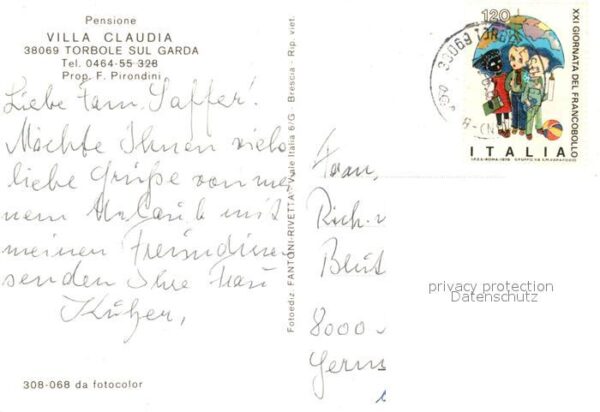 Pensione
VILLA CLAUDIA
38069 TORBOLE SUL GARDA
Tel. 0464-55-328
Prop. F. Pirondini
Liebe Fam. Saffer!
Möchte Ihnen viele
liebe Grüße von mei
nem Urlaub mit
meinen Freundinnen
senden Ihre Frau
308-068 da fotocolor
Fotoediz. FANTONI-RIVETTA - Viale Italia 6/G - Brescia - Rip. viet.
120
XXI GIORNATA DEL FRANCOBOLLO
ITALIA
38069 TORBOLE
Fam.
Rich.
8000
privacy protection
Datenschutz